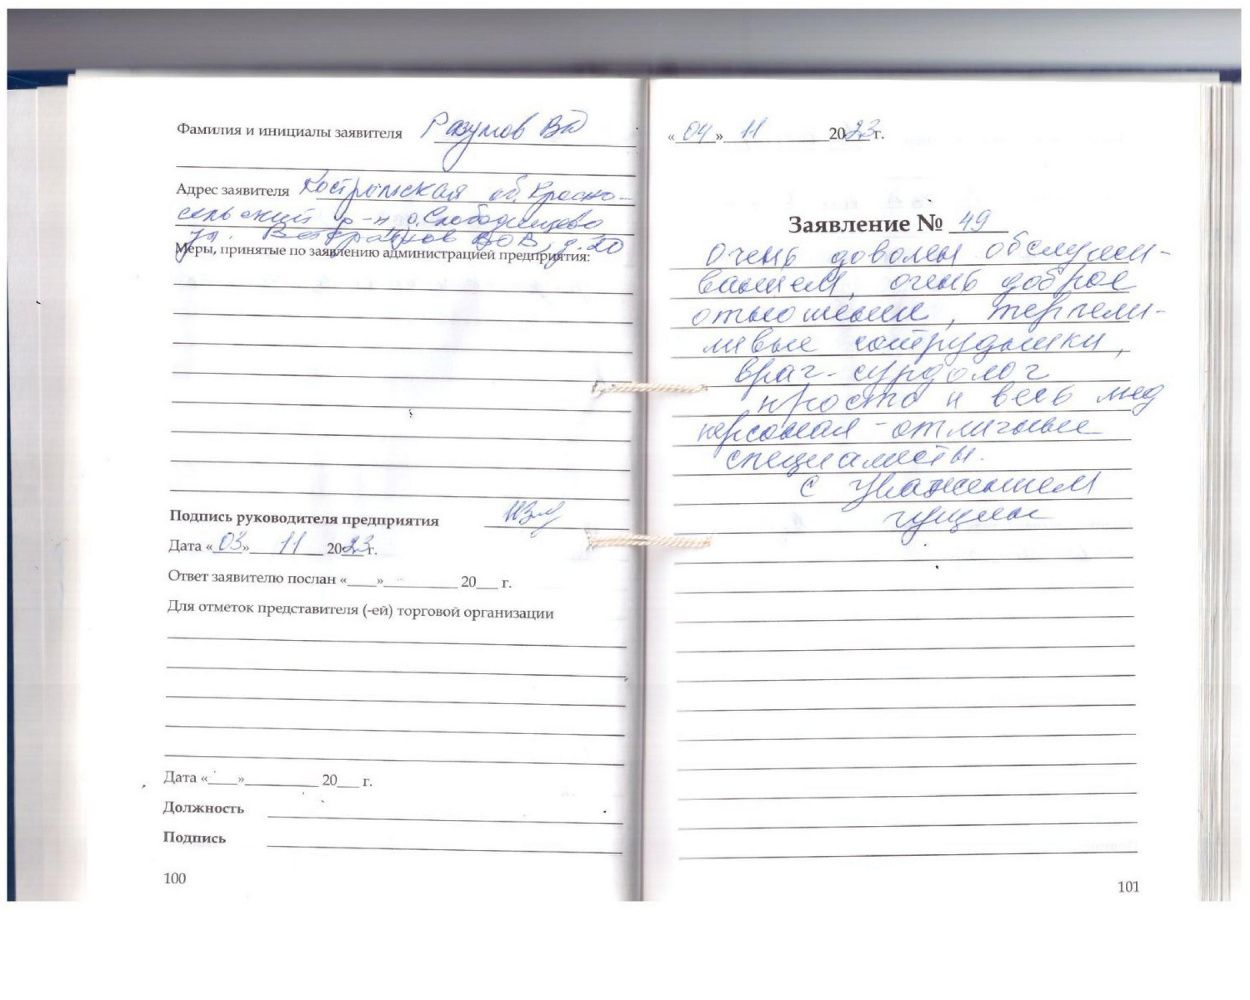 Фамилия и инициалы заявителя Разумов В
Адрес заявителя Костромская об. Красно-
сельский р-н
ул. Ветеранов ВОВ, д. 20
Меры, принятые по заявлению администрацией предприятия:
Подпись руководителя предприятия
Дата «03» 11 2023 г.
Ответ заявителю послан «___»__________ 20___ г.
Для отметок представителя (-ей) торговой организации
Дата «____»__________ 20___ г.
Должность
Подпись
100
«04» 11 2023 г.
Заявление № 49
Очень доволен обслужи-
ванием, очень доброе
отношение, терпели-
ливые сотрудники,
врач-сурдолог
просто и весь мед
персонал - отличные
специалисты.
С уважением
101